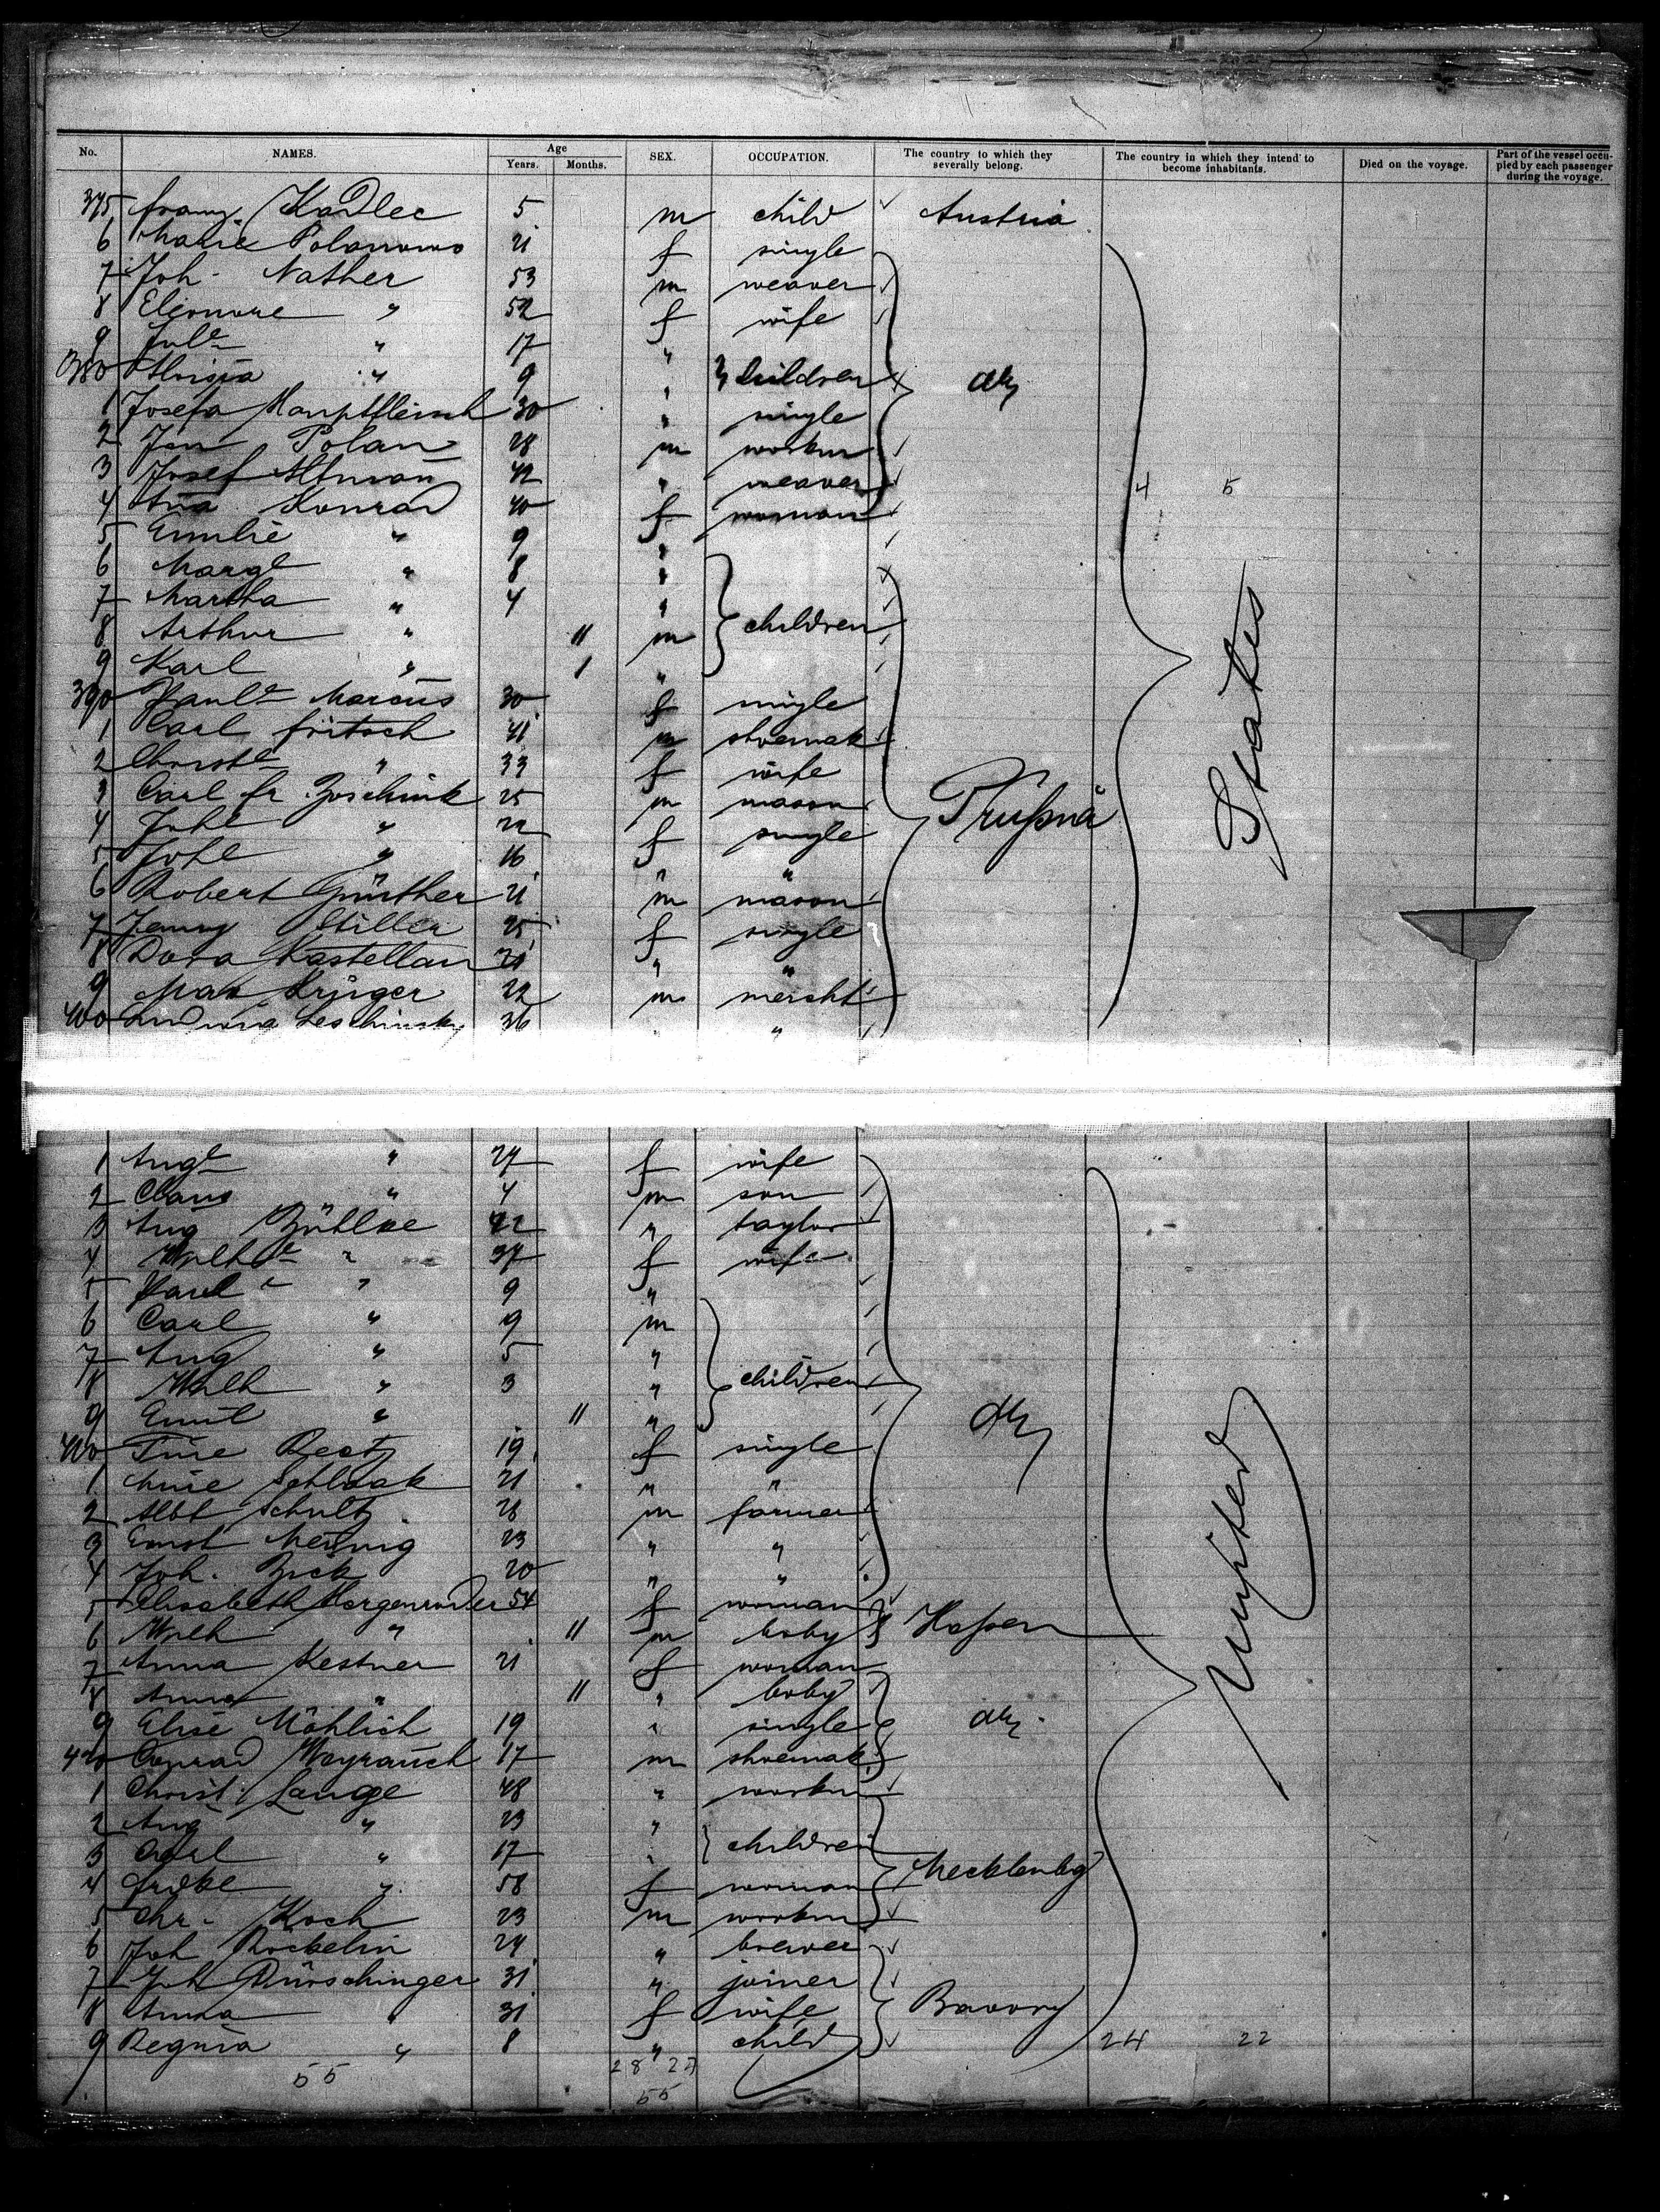 No. NAMES. Age Years. Months. SEX. OCCUPATION. The country to which they severally belong. The country in which they intend to become inhabitants. Died on the voyage. Part of the vessel occupied by each passenger during the voyage.
375 Franz Kadlec 5 m child Austria
6 Marie 21 f single
7 Joh. Nather 53 m weaver
8 Eleonore " 52 f wife
9 Jule " 17 "
380 Aloisia " 9 " children dty
1 Josefa Hauptfleisch 30 " single
2 Jan Polan 28 m workm
3 Josef Altman 42 " weaver
4 Ana Konrad 40 f woman 4 5
5 Emilie " 9 "
6 Margt " 8 "
7 Martha " 4 "
8 Arthur " 11 m children
9 Karl " 1 "
390 Paule Marcus 30 f single
1 Carl Fritsch 41 m shoemak States
2 Christe " 33 f wife
3 Carl Fr. Zoschink 25 m mason Prußia
4 Johe " 22 f single
5 Johe " 16 " "
6 Robert Günther 21 m mason
7 Jenny Stiller 25 f single
8 Dora Kastellan 21 " "
9 Max Krüger 22 m mercht
400 Ludwig Leschinsky 36 " "
1 Auge " 27 f wife
2 Claus " 4 m son
3 Aug Bühlke 42 " taylor
4 Wilhe " 37 f wife
5 Paule " 9 "
6 Carl " 9 m
7 Aug " 5 "
8 Wilh " 3 " children
9 Emil " 11 " dty
410 Tine Reetz 19 f single
1 Mine Schlaak 21 " "
2 Albt Schultz 28 m farmer
3 Ernst Meinig 23 " "
4 Joh. Zick 20 " " United
5 Elisabeth Morgenroder 54 f woman
6 Wilh " 11 m baby Haßen
7 Anna Kestner 21 f woman
8 Anna " 11 " baby
9 Elise Möhlich 19 " single dty
420 Conrad Weyrauch 17 m shoemak
1 Christ Lange 48 " workm
2 Aug " 23 "
3 Carl " 17 " children
4 Fridke " 58 f woman Mecklenbg
5 Chr. Koch 23 m workm
6 Joh Röckelin 24 " brewer
7 Joh Dürschinger 31 " joiner
8 Anna " 31 f wife Bavary
9 Regina " 8 " child 24 22
55 28 27
55